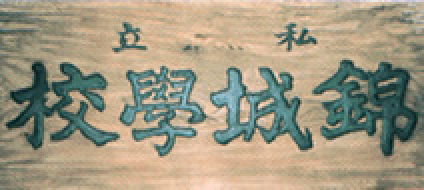 私立
錦城學校